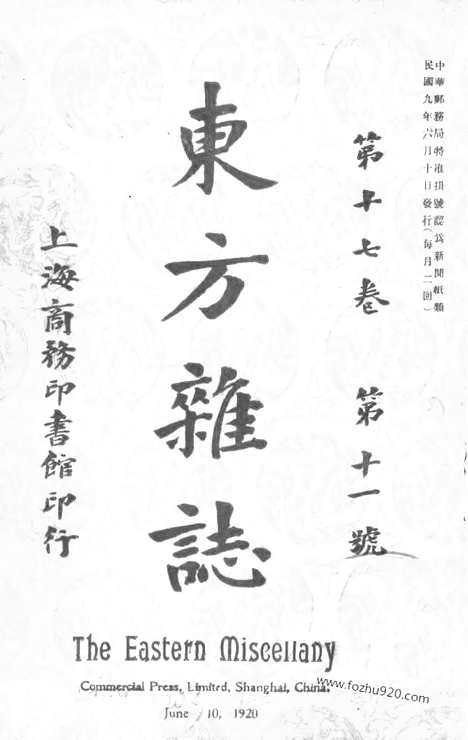 中華郵務局特准掛號認爲新聞紙類
民國九年六月十日發行(每月二回)
第十七卷 第十一號
東方雜誌
上海商務印書館印行
The Eastern Miscellany
Commercial Press, Limited, Shanghai, China.
June 10, 1920
www.fozhu920.com